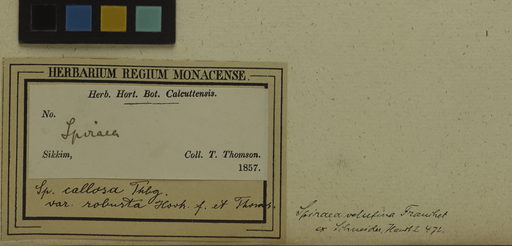 HERBARIUM REGIUM MONACENSE.
Herb. Hort. Bot. Calcuttensis.
No.
Spiraea
Sikkim, Coll. T. Thomson.
1857.
Sp. callosa Thbg.
var. robusta Hook. f. et Thoms.
Spiraea velutina Franchet
ex Schneider, Handb. 472.